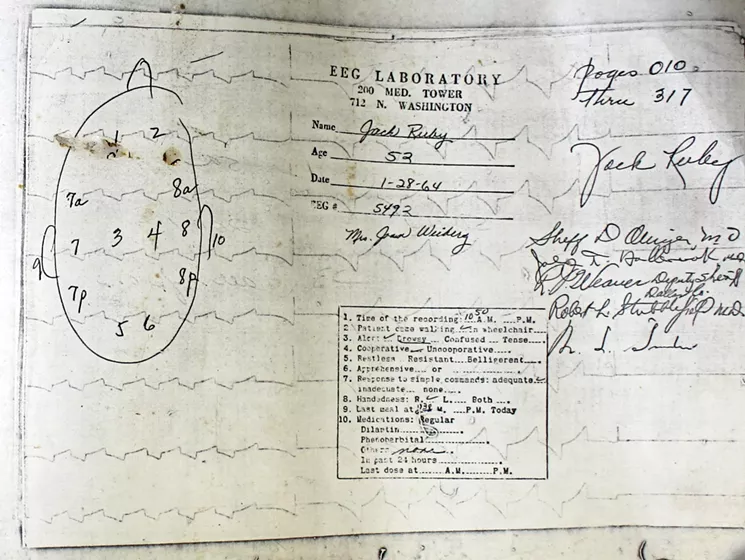 EEG LABORATORY
200 MED. TOWER
712 N. WASHINGTON
Name Jack Ruby
Age 52
Date 1-28-64
EEG # 5492
Mrs. Joan
pages 010
thru 317
Jack Ruby
Sheff D Olinger, MD
MD
Weaver Deputy Sheriff
Dallas Co.
Robert L. Stubblefield MD
1 2
7a 8a
7 3 4 8
9 10
7p 8p
5 6
1. Time of the recording 1050 A.M. ... P.M.
2. Patient came walking in wheelchair
3. Alert Drowsy Confused Tense
4. Cooperative Uncooperative
5. Restless Resistant Belligerent
6. Apprehensive or
7. Response to simple commands: adequate
inadequate none
8. Handedness: R. L. Both
9. Last meal at M. P.M. Today
10. Medications: Regular
Dilantin
Phenobarbital
Other none
In past 24 hours
Last dose at A.M. P.M.